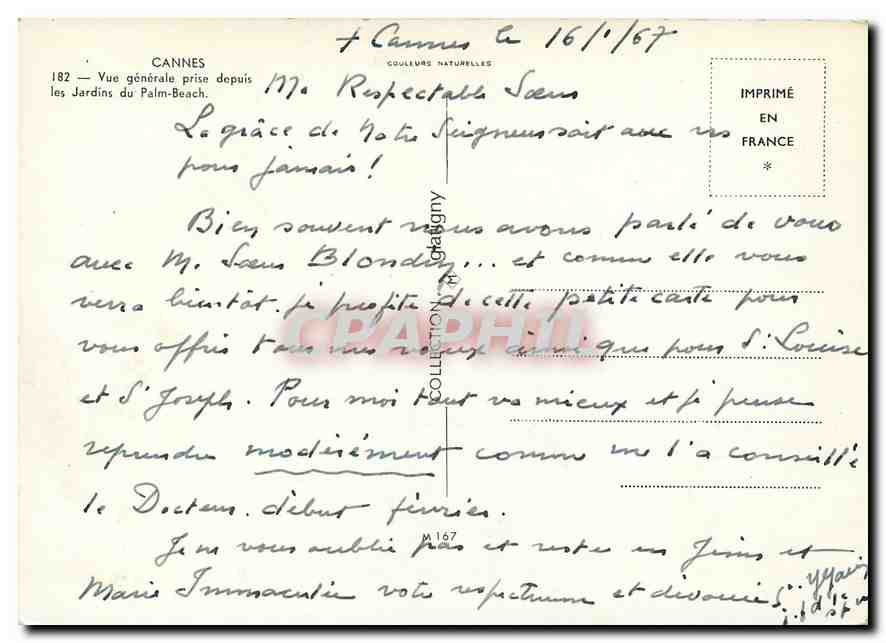 + Cannes le 16/1/67
CANNES
182 — Vue générale prise depuis
les Jardins du Palm-Beach.
COULEURS NATURELLES
IMPRIMÉ
EN
FRANCE
*
Ma Respectable Sœur
La grâce de Notre Seigneur soit avec ns
pour jamais !
Bien souvent nous avons parlé de vous
avec M. Sœur Blondin... et comme elle vous
verra bientôt. je profite de cette petite carte pour
vous offrir tous mes vœux ainsi que pour Sr Louise
et Sr Joseph. Pour moi tout va mieux et je pense
reprendre modérément comme me l'a conseillé
le Docteur. début février.
Je ne vous oublie pas et reste en Jésus et
Marie Immaculée votre respectueuse et dévouée S.
COLLECTION M glatigny
M 167
CPAPHIL